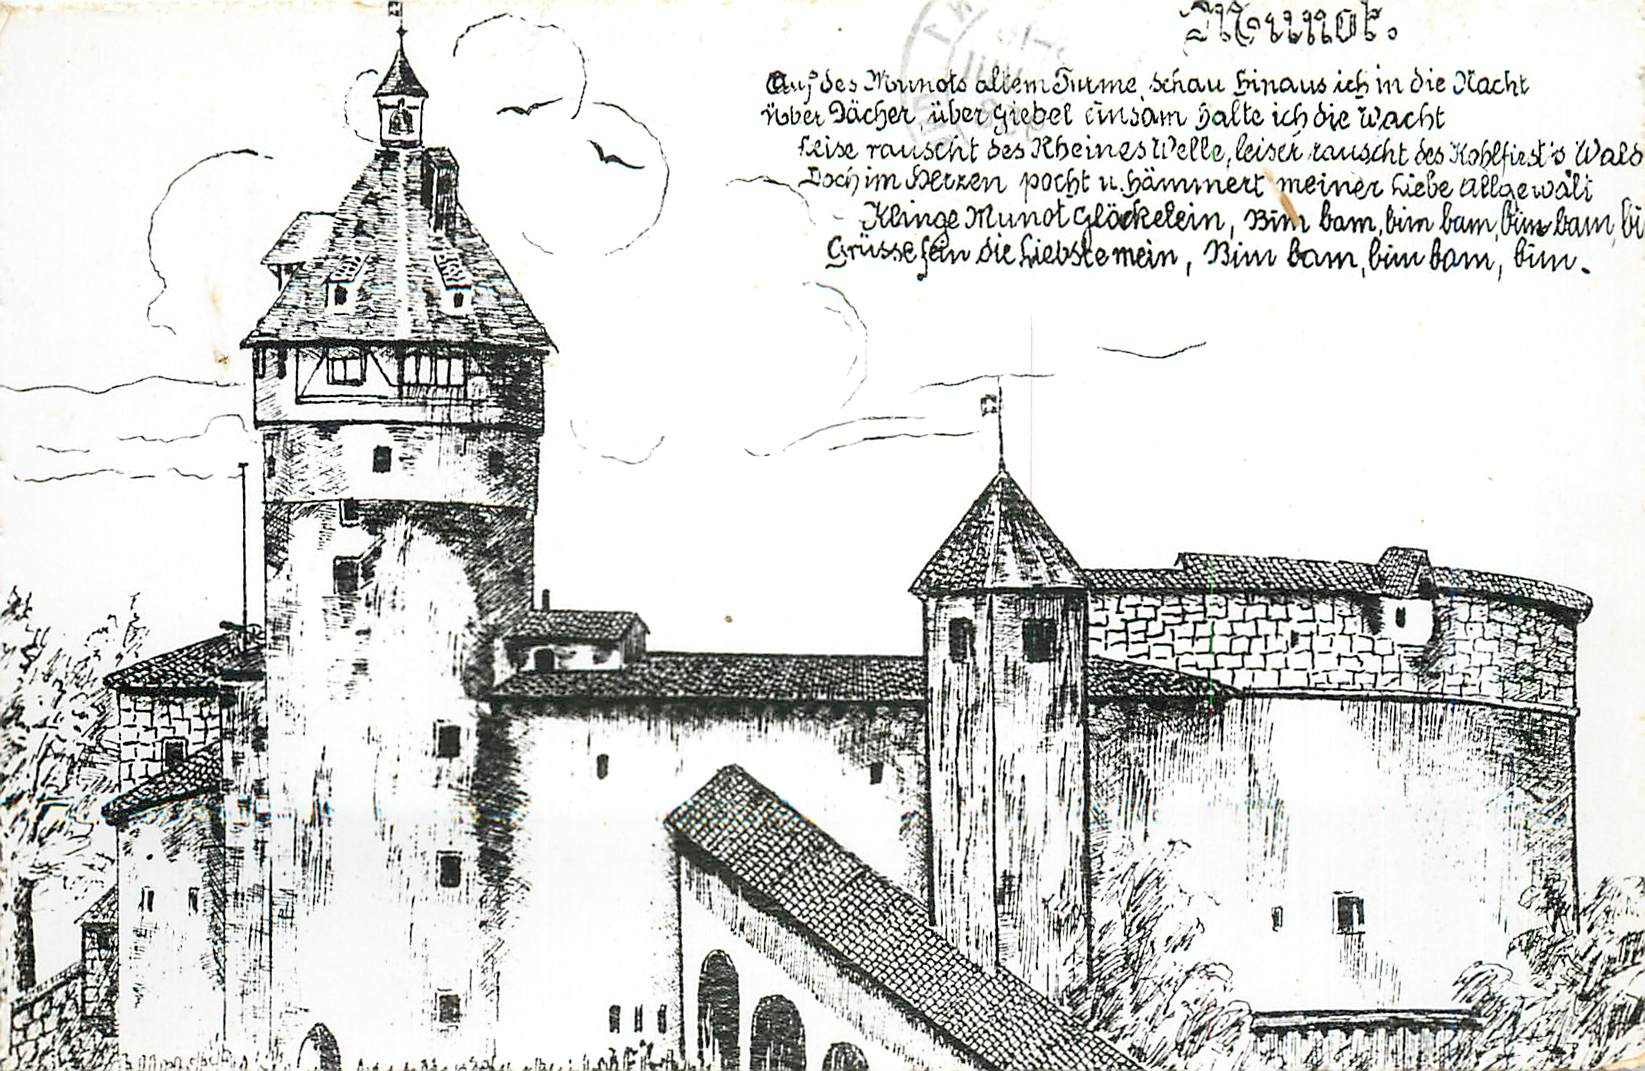 Munot.
Auf des Munots altem Turme schau hinaus ich in die Nacht
Über Dächer, über Giebel einsam halte ich die Wacht
Leise rauscht des Rheines Welle, leiser rauscht des Kohlfirst's Wald
Doch im Herzen pocht u. hämmert meiner Liebe Allgewalt
Klinge Munot Glöckelein, Bim bam, bim bam, bim bam, bi
Grüsse fein die Liebste mein, Bim bam, bim bam, bim.